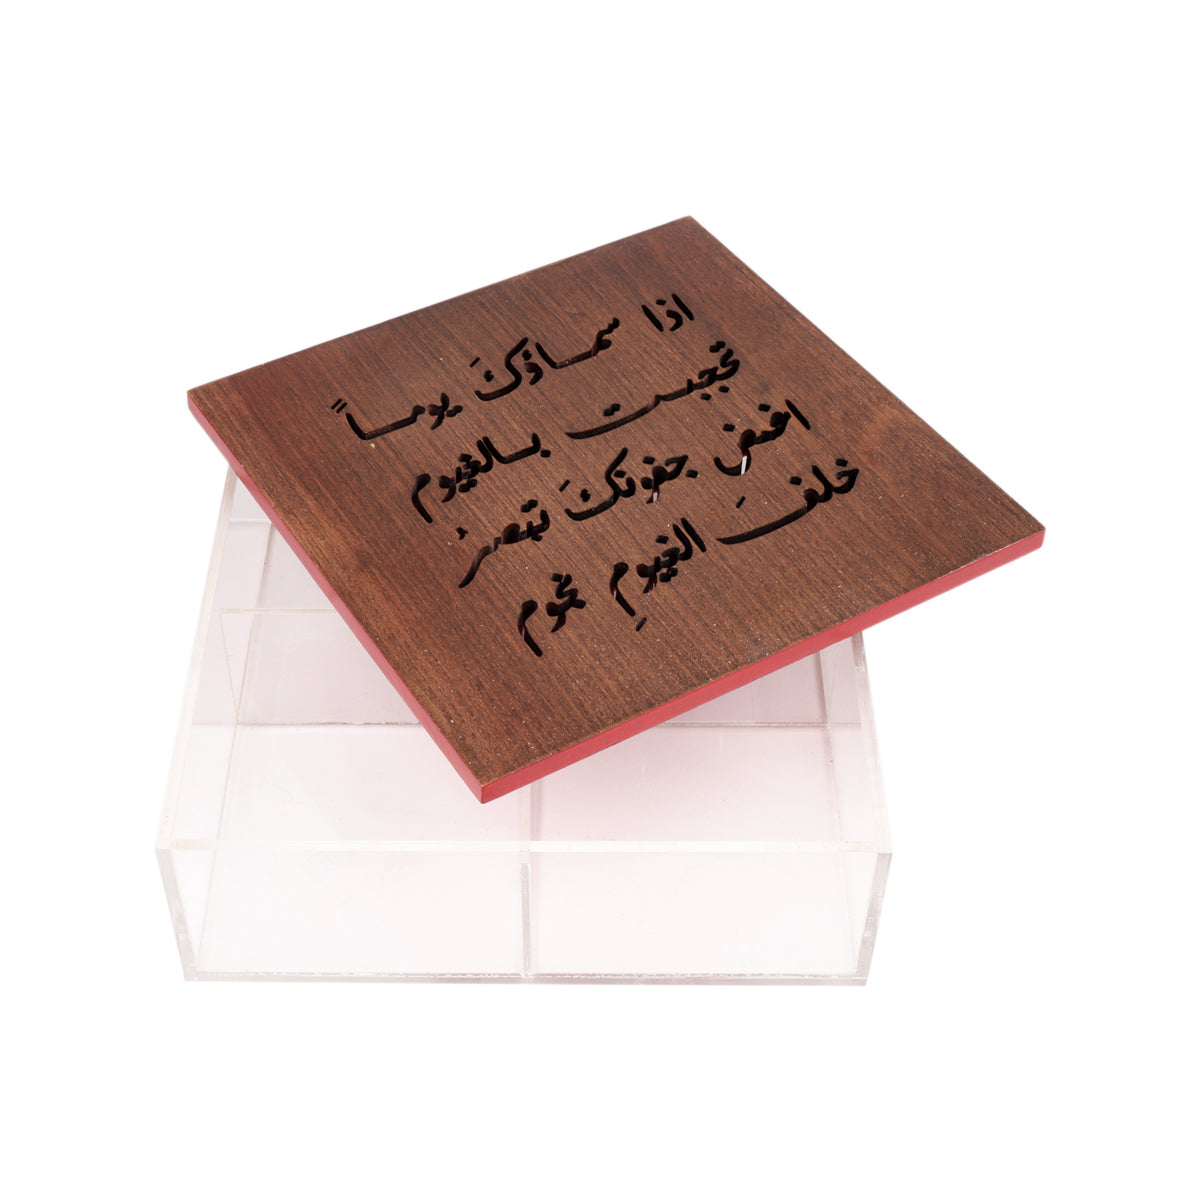 اذا سماؤكَ يوماً
تحجبت بالغيوم
اغمض جفونكَ تبصرُ
خلفَ الغيومِ نجوم